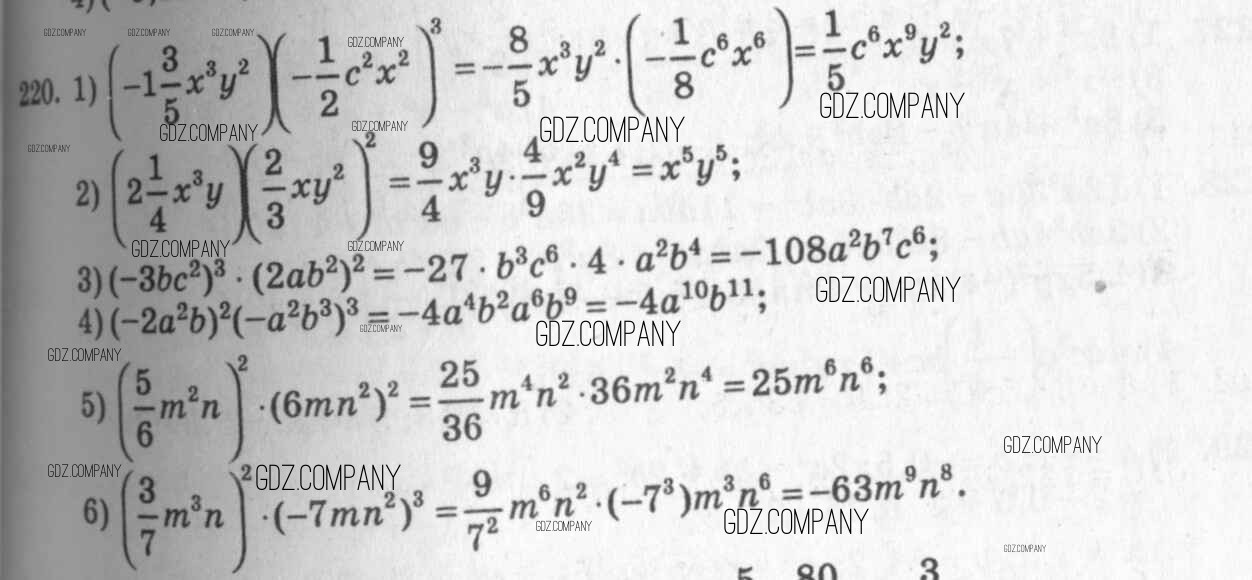 220. 1) (-1 3/5 x³y²)(-1/2 c²x²)³ = -8/5 x³y² · (-1/8 c⁶x⁶) = 1/5 c⁶x⁹y²;
2) (2 1/4 x³y)(2/3 xy²)² = 9/4 x³y · 4/9 x²y⁴ = x⁵y⁵;
3) (-3bc²)³ · (2ab²)² = -27 · b³c⁶ · 4 · a²b⁴ = -108a²b⁷c⁶;
4) (-2a²b)²(-a²b³)³ = -4a⁴b²a⁶b⁹ = -4a¹⁰b¹¹;
5) (5/6 m²n)² · (6mn²)² = 25/36 m⁴n² · 36m²n⁴ = 25m⁶n⁶;
6) (3/7 m³n)² · (-7mn²)³ = 9/7² m⁶n² · (-7³)m³n⁶ = -63m⁹n⁸.
GDZ.COMPANY GDZ.COMPANY GDZ.COMPANY
GDZ.COMPANY
GDZ.COMPANY
GDZ.COMPANY GDZ.COMPANY GDZ.COMPANY
GDZ.COMPANY
GDZ.COMPANY GDZ.COMPANY
GDZ.COMPANY
GDZ.COMPANY GDZ.COMPANY
GDZ.COMPANY
GDZ.COMPANY
GDZ.COMPANY GDZ.COMPANY
GDZ.COMPANY GDZ.COMPANY
GDZ.COMPANY